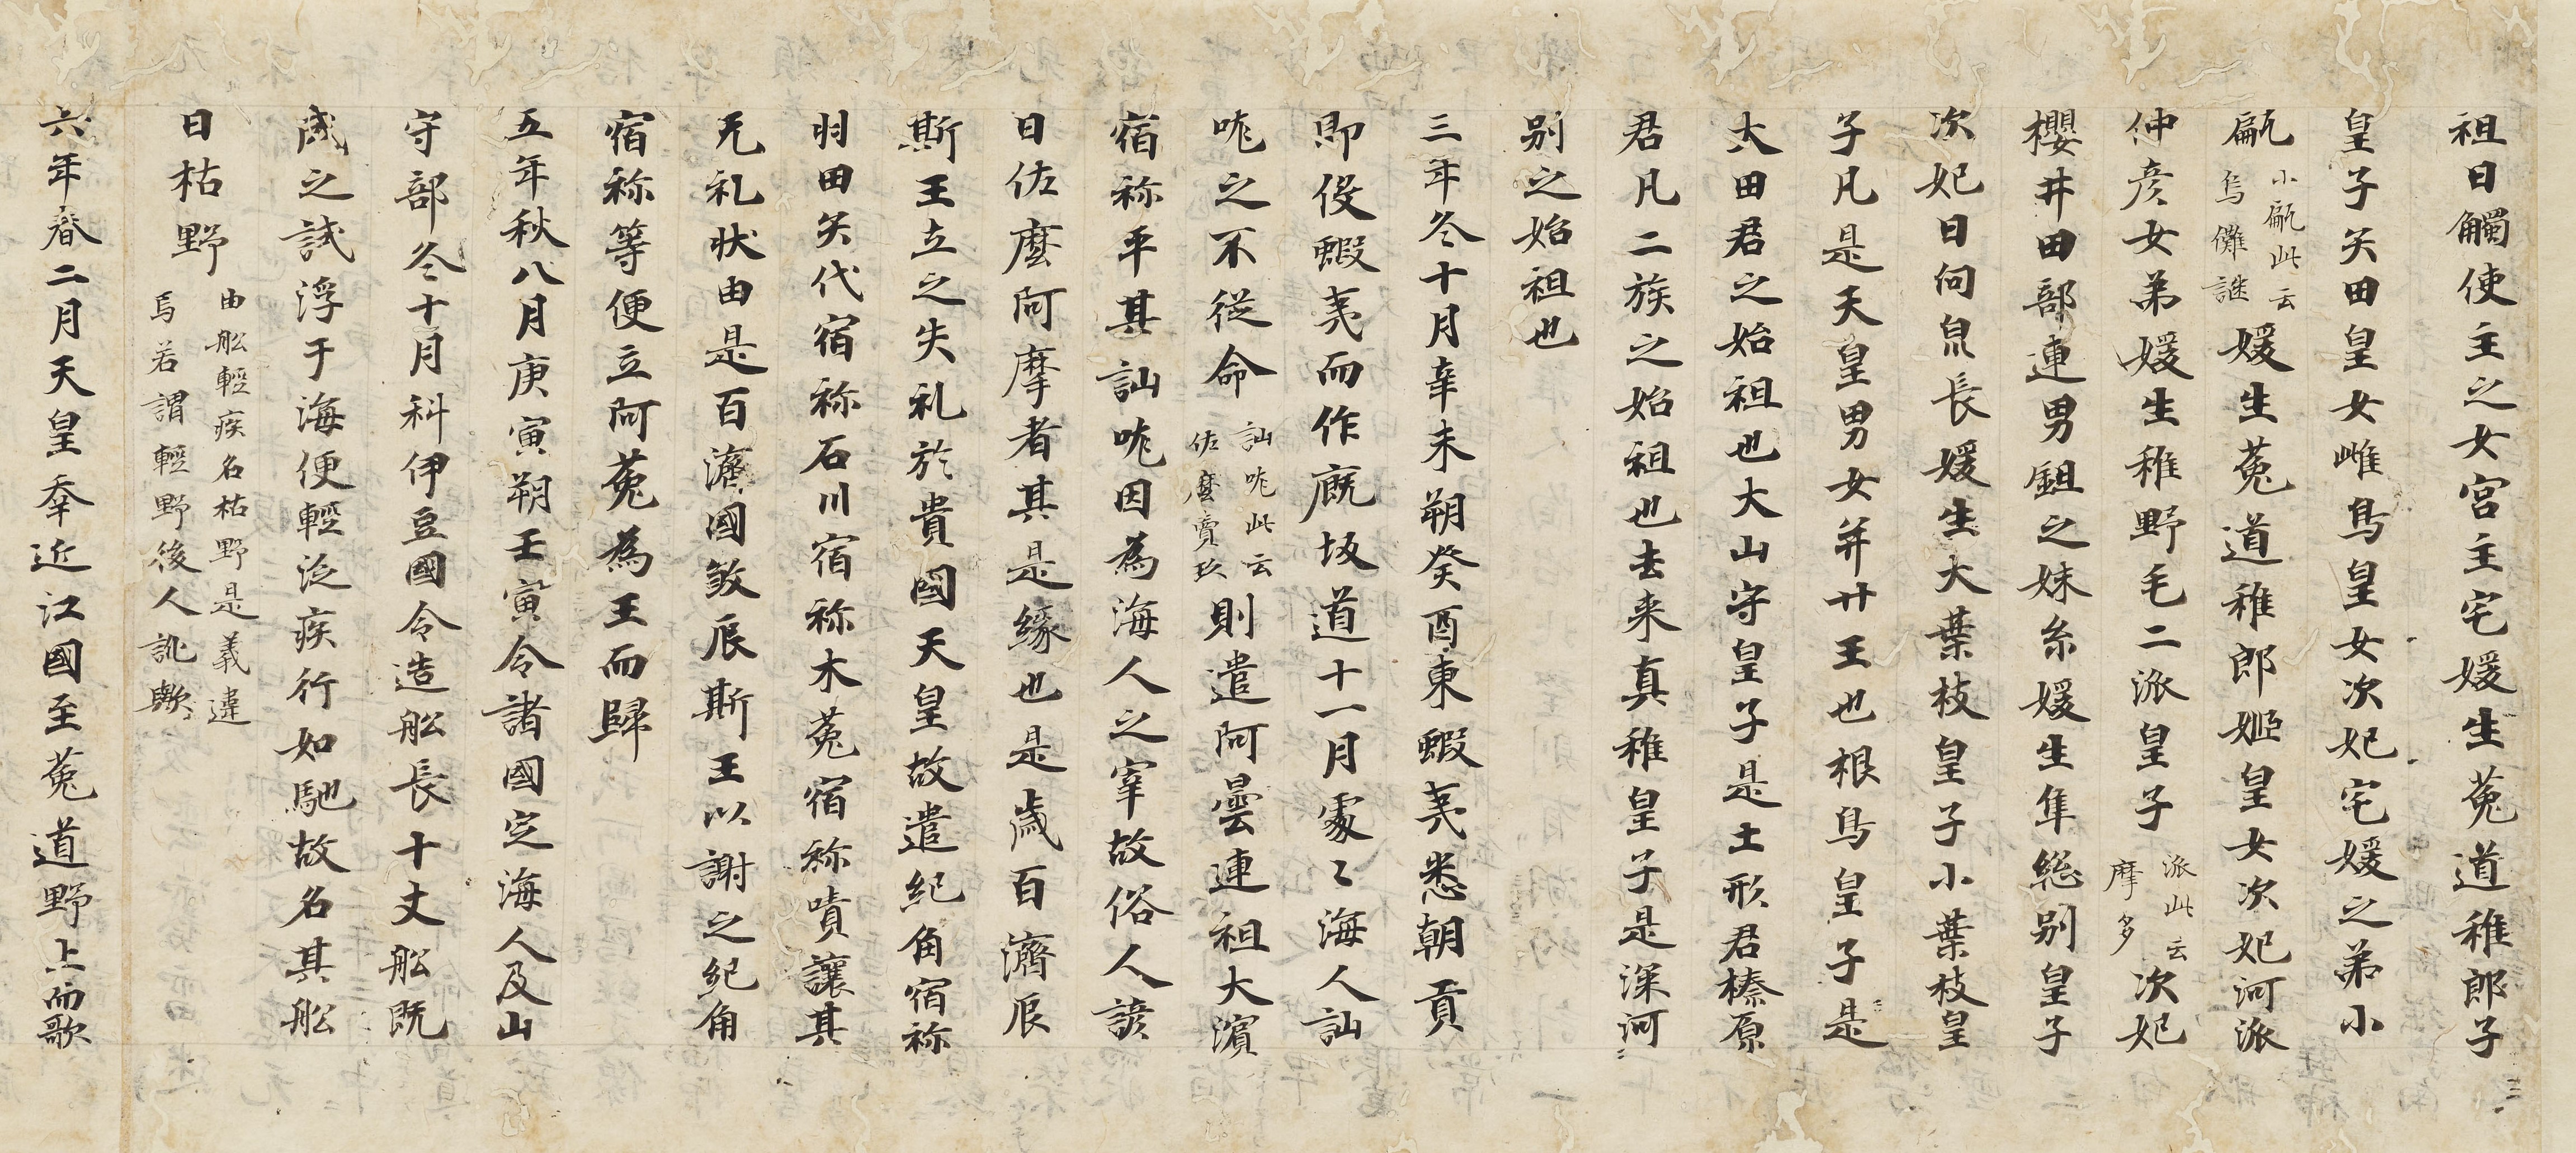 祖曰觸使主之女宮主宅媛生菟道稚郎子
皇子矢田皇女雌鳥皇女次妃宅媛之弟小
甂小甂此云烏儺謎媛生菟道稚郎姬皇女次妃河派
仲彦女弟媛生稚野毛二派皇子派此云摩多次妃
櫻井田部連男鉏之妹糸媛生隼総別皇子
次妃日向泉長媛生大葉枝皇子小葉枝皇
子凡是天皇男女并廿王也根鳥皇子是
大田君之始祖也大山守皇子是土形君榛原
君凡二族之始祖也去来真稚皇子是深河
別之始祖也
三年冬十月辛未朔癸酉東蝦夷悉朝貢
即役蝦夷而作厩坂道十一月處〻海人訕
哤之不従命訕哤此云佐麼賣玖則遣阿曇連祖大濱
宿祢平其訕哤因為海人之宰故俗人諺
曰佐麼阿摩者其是縁也是歳百濟辰
斯王立之失礼於貴國天皇故遣紀角宿祢
羽田矢代宿祢石川宿祢木菟宿祢嘖讓其
无礼状由是百濟國敘辰斯王以謝之紀角
宿祢等便立阿菟為王而歸
五年秋八月庚寅朔壬寅令諸國定海人及山
守部冬十月科伊豆國令造舩長十丈舩既
成之試浮于海便輕泛疾行如馳故名其舩
曰枯野由舩輕疾名枯野是義違焉若謂輕野後人訛歟
六年春二月天皇幸近江國至菟道野上而歌